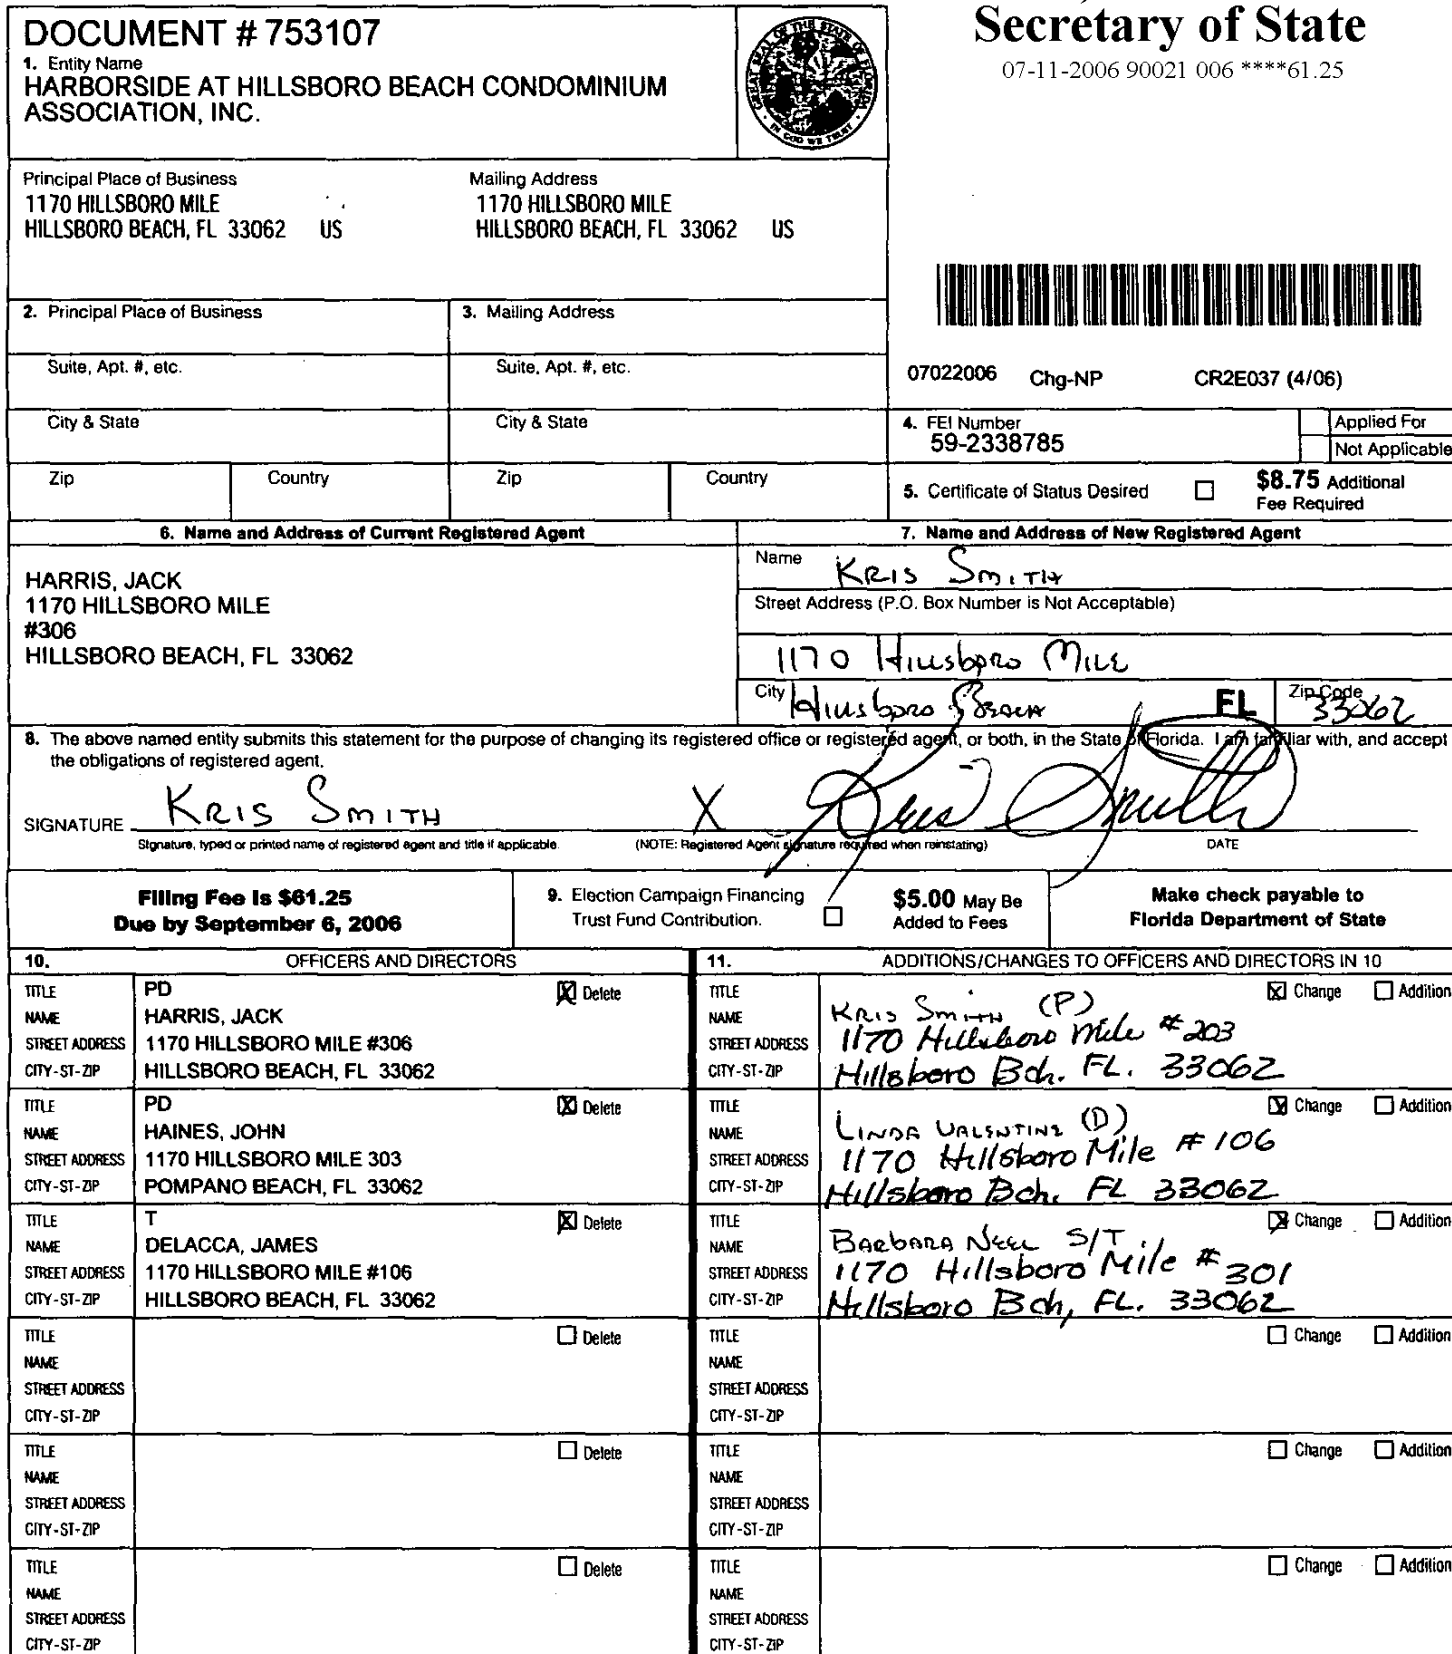 DOCUMENT # 753107
1. Entity Name
HARBORSIDE AT HILLSBORO BEACH CONDOMINIUM
ASSOCIATION, INC.
GREAT SEAL OF THE STATE OF FLORIDA
IN GOD WE TRUST
Secretary of State
07-11-2006 90021 006 ****61.25
Principal Place of Business
1170 HILLSBORO MILE
HILLSBORO BEACH, FL 33062 US
Mailing Address
1170 HILLSBORO MILE
HILLSBORO BEACH, FL 33062 US
2. Principal Place of Business
3. Mailing Address
Suite, Apt. #, etc.
Suite, Apt. #, etc.
City & State
City & State
Zip Country
Zip Country
07022006 Chg-NP CR2E037 (4/06)
4. FEI Number
59-2338785
Applied For
Not Applicable
5. Certificate of Status Desired
$8.75 Additional
Fee Required
6. Name and Address of Current Registered Agent
HARRIS, JACK
1170 HILLSBORO MILE
#306
HILLSBORO BEACH, FL 33062
7. Name and Address of New Registered Agent
Name KRIS SMITH
Street Address (P.O. Box Number is Not Acceptable)
1170 Hillsboro Mile
City Hillsboro Beach FL Zip Code 33062
8. The above named entity submits this statement for the purpose of changing its registered office or registered agent, or both, in the State of Florida. I am familiar with, and accept
the obligations of registered agent.
SIGNATURE KRIS SMITH X Kris Smith
Signature, typed or printed name of registered agent and title if applicable. (NOTE: Registered Agent signature required when reinstating) DATE
Filing Fee is $61.25
Due by September 6, 2006
9. Election Campaign Financing
Trust Fund Contribution.
$5.00 May Be
Added to Fees
Make check payable to
Florida Department of State
10. OFFICERS AND DIRECTORS
11. ADDITIONS/CHANGES TO OFFICERS AND DIRECTORS IN 10
TITLE PD X Delete
NAME HARRIS, JACK
STREET ADDRESS 1170 HILLSBORO MILE #306
CITY-ST-ZIP HILLSBORO BEACH, FL 33062
TITLE X Change Addition
NAME KRIS SMITH (P)
STREET ADDRESS 1170 Hillsboro Mile #203
CITY-ST-ZIP Hillsboro Bch. FL. 33062
TITLE PD X Delete
NAME HAINES, JOHN
STREET ADDRESS 1170 HILLSBORO MILE 303
CITY-ST-ZIP POMPANO BEACH, FL 33062
TITLE X Change Addition
NAME LINDA VALENTINE (D)
STREET ADDRESS 1170 Hillsboro Mile #106
CITY-ST-ZIP Hillsboro Bch. FL 33062
TITLE T X Delete
NAME DELACCA, JAMES
STREET ADDRESS 1170 HILLSBORO MILE #106
CITY-ST-ZIP HILLSBORO BEACH, FL 33062
TITLE X Change Addition
NAME BARBARA NEEL S/T
STREET ADDRESS 1170 Hillsboro Mile #301
CITY-ST-ZIP Hillsboro Bch, FL. 33062
TITLE Delete
NAME
STREET ADDRESS
CITY-ST-ZIP
TITLE Change Addition
NAME
STREET ADDRESS
CITY-ST-ZIP
TITLE Delete
NAME
STREET ADDRESS
CITY-ST-ZIP
TITLE Change Addition
NAME
STREET ADDRESS
CITY-ST-ZIP
TITLE Delete
NAME
STREET ADDRESS
CITY-ST-ZIP
TITLE Change Addition
NAME
STREET ADDRESS
CITY-ST-ZIP